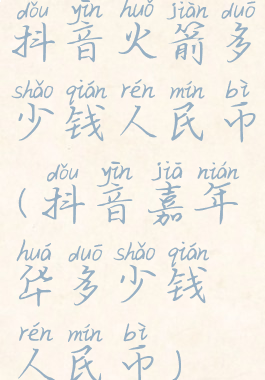 dǒu yīn huǒ jiàn duō
抖音火箭多
shǎo qián rén mín bì
少钱人民币
dǒu yīn jiā nián
(抖音嘉年
huá duō shǎo qián
华多少钱
rén mín bì
人民币)